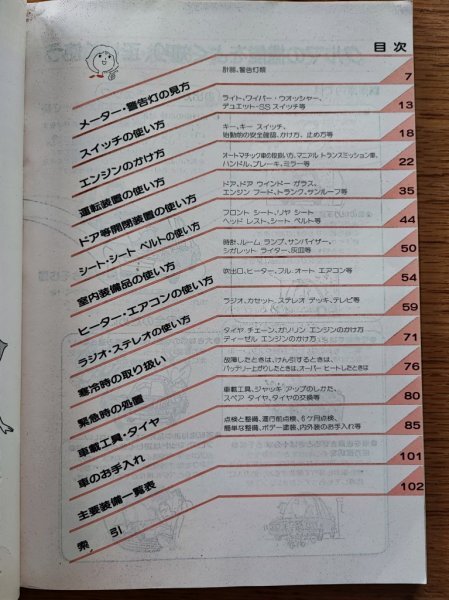 目次
メーター・警告灯の見方
計器、警告灯類
7
スイッチの使い方
ライト、ワイパー・ウオッシャー、
デュエット-SS スイッチ等
13
エンジンのかけ方
キー、キー スイッチ、
始動前の安全確認、かけ方、止め方等
18
運転装置の使い方
オートマチック車の取扱い方、マニアル トランスミッション車、
ハンドル、ブレーキ、ミラー等
22
ドア等開閉装置の使い方
ドア、ドア ウインドー ガラス、
エンジン フード、トランク、サンルーフ等
35
シート・シート ベルトの使い方
フロント シート、リヤ シート
ヘッド レスト、シート ベルト等
44
室内装備品の使い方
時計、ルーム ランプ、サンバイザー、
シガレット ライター、灰皿等
50
ヒーター・エアコンの使い方
吹出口、ヒーター、フル オート エアコン等
54
ラジオ・ステレオの使い方
ラジオ、カセット、ステレオ デッキ、テレビ等
59
寒冷時の取り扱い
タイヤ チェーン、ガソリン エンジンのかけ方
ディーゼル エンジンのかけ方
71
緊急時の処置
故障したときは、けん引するときは、
バッテリー上がりしたときは、オーバー ヒートしたときは
76
車載工具・タイヤ
車載工具、ジャッキ アップのしかた、
スペア タイヤ、タイヤの交換等
80
車のお手入れ
点検と整備、運行前点検、6ケ月点検、
簡単な整備、ボデー塗装、内外装のお手入れ等
85
主要装備一覧表
101
索引
102